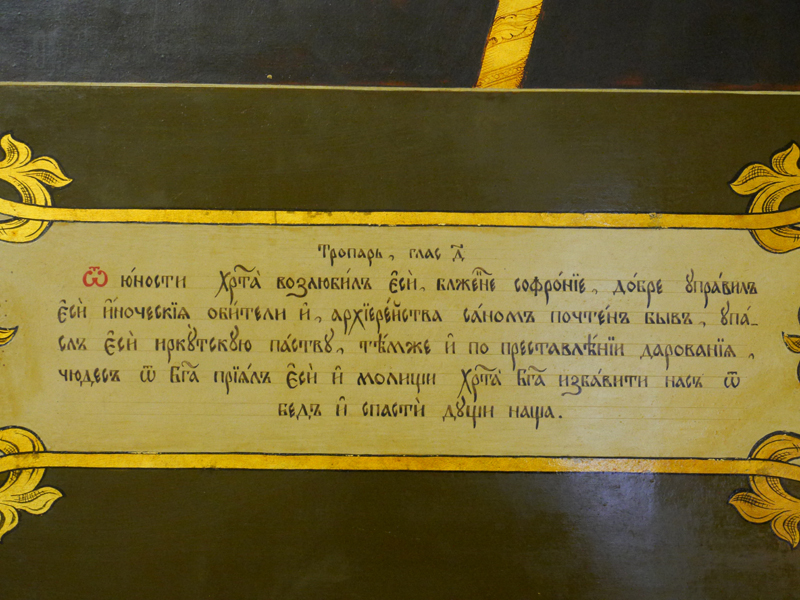 Тропарь, глас д҃
Ѿ ю́ности Хрⷭ҇та̀ возлюби́лъ є҆сѝ, бл҃же́нне софро́нїе, до́бре упра́вилъ
є҆сѝ и҆́ноческїѧ оби́тели и҆, архїере́йства са́номъ почте́нъ бывъ, упа́-
слъ є҆сѝ иркꙋ́тскую па́ству, тѣ́мже и҆ по преставле́нїи дарованїѧ,
чюдесъ ѿ Бг҃а прїѧ́лъ є҆сѝ и҆ молиши Хрⷭ҇та̀ Бг҃а изба́вити насъ ѿ
бедъ и҆ спастѝ дꙋ́ши наша.